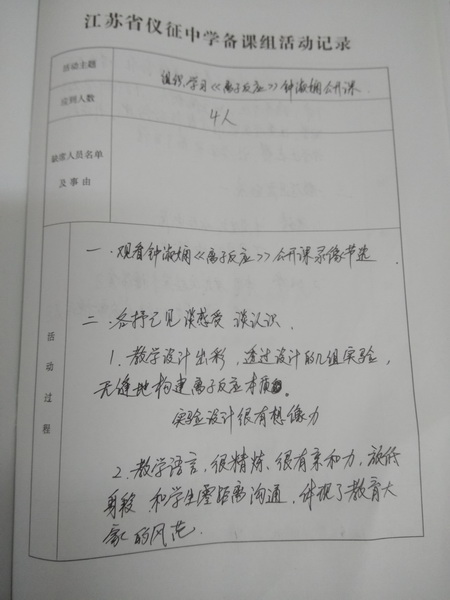 江苏省仪征中学备课组活动记录
活动主题
组织学习《离子反应》钟淑娴公开课
应到人数
4人
缺席人员名单
及事由
活动过程
一、观看钟淑娴《离子反应》公开课录像节选
二、各抒己见 谈感受 谈认识.
1. 教学设计出彩，透过设计的几组实验，
无缝地构建离子反应本质。
实验设计很有想像力
2. 教学语言，很精炼，很有亲和力，放低
身段 和学生零距离沟通，体现了教育大
家的风范.